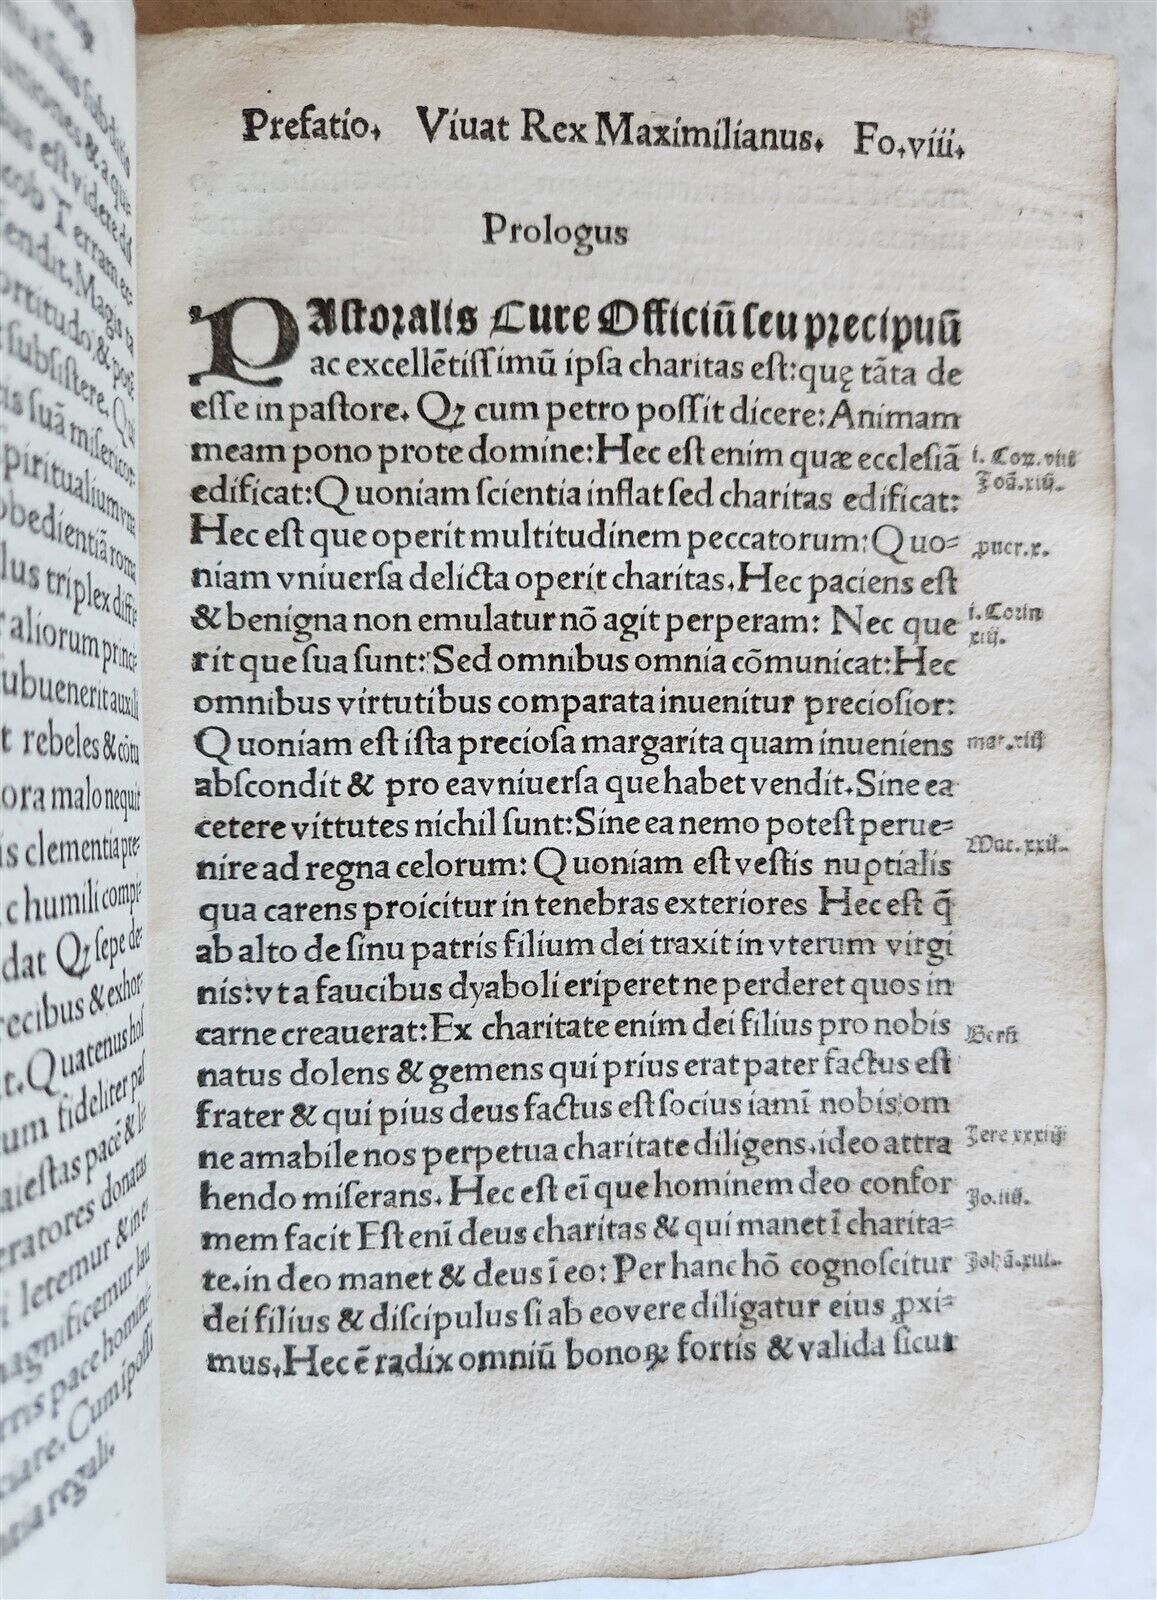 Prefatio. Viuat Rex Maximilianus. Fo.viii.
Prologus
PAstoralis Cure Officiũ seu precipuũ
ac excellẽtissimũ ipsa charitas est: quę tãta de
esse in pastore. Qꝫ cum petro possit dicere: Animam
meam pono prote domine: Hec est enim quæ ecclesiã
edificat: Quoniam scientia inflat sed charitas edificat:
Hec est que operit multitudinem peccatorum: Quo=
niam vniuersa delicta operit charitas. Hec paciens est
& benigna non emulatur nõ agit perperam: Nec que
rit que sua sunt: Sed omnibus omnia cõmunicat: Hec
omnibus virtutibus comparata inuenitur preciosior:
Quoniam est ista preciosa margarita quam inueniens
abscondit & pro ea vniuersa que habet vendit. Sine ea
cetere vittutes nichil sunt: Sine ea nemo potest perue=
nire ad regna celorum: Quoniam est vestis nuptialis
qua carens proicitur in tenebras exteriores Hec est q̃
ab alto de sinu patris filium dei traxit in vterum virgi
nis: vt a faucibus dyaboli eriperet ne perderet quos in
carne creauerat: Ex charitate enim dei filius pro nobis
natus dolens & gemens qui prius erat pater factus est
frater & qui pius deus factus est socius iamĩ nobis om
ne amabile nos perpetua charitate diligens. ideo attra
hendo miserans. Hec est eĩ que hominem deo confor
mem facit Est enĩ deus charitas & qui manet ĩ charita=
te. in deo manet & deus ĩ eo: Per hanc hõ cognoscitur
dei filius & discipulus si ab eo vere diligatur eius ꝓxi=
mus. Hec ẽ radix omniũ bonoꝝ fortis & valida sicut
i. Cor. viii
Joã. xiii.
ꝓuer. x.
i. Corin
xiii.
mat. xiii
Mat. xxii.
Bern
Jere xxxiii
Jo. iiii.
Johã. xiii.
rebeles & cõtu
ora malo nequit
is clementia pre=
c humili compi=
dat Qꝫ sepe de=
recibus & exhor=
t. Quatenus hos
um fideliter pas
aiestas pacẽ & le